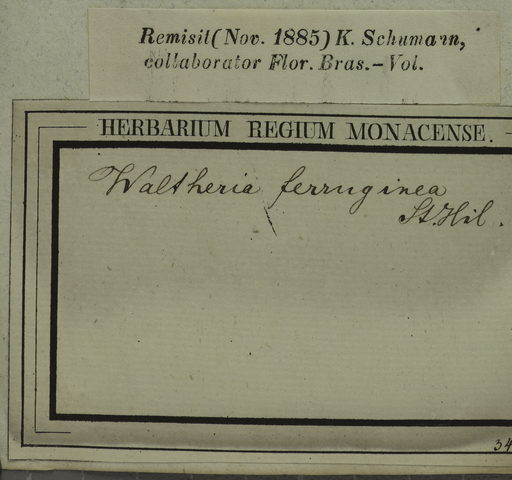 Remisit (Nov. 1885) K. Schumann,
collaborator Flor. Bras.-Vol.
HERBARIUM REGIUM MONACENSE.
Waltheria ferruginea
St. Hil.
34